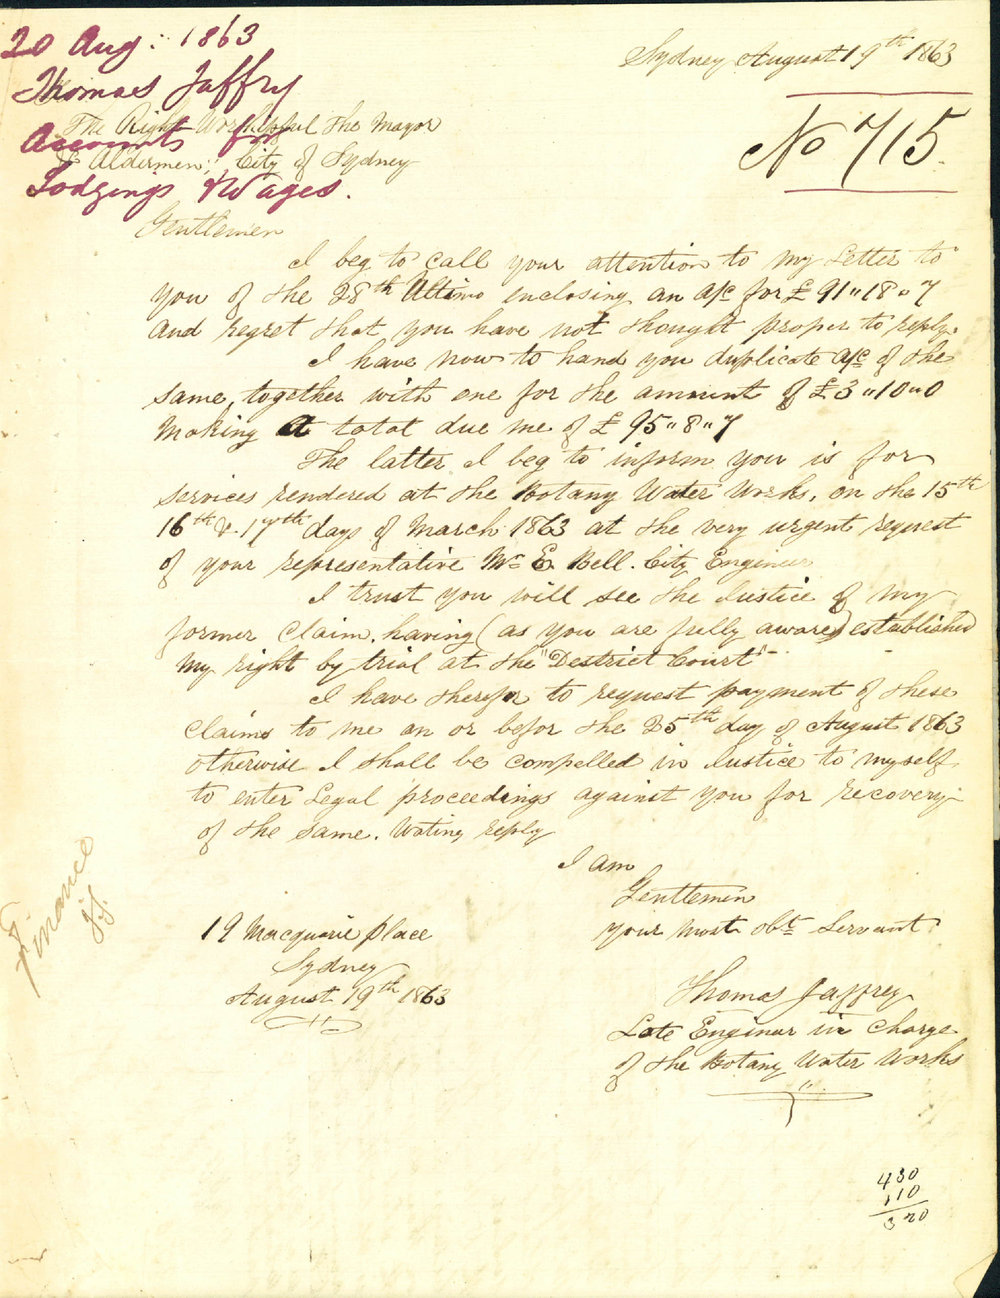 20 Aug: 1863
Thomas Jaffry
Accounts for
Lodgings & Wages.
Sydney August 19th 1863
No 715.
The Right Worshipful the Mayor
& Aldermen, City of Sydney
Gentlemen
I beg to call your attention to my Letter to
you of the 28th Ultimo enclosing an a/c for £91"18"7
and regret that you have not thought proper to reply.
I have now to hand you duplicate a/c of the
same, together with one for the amount of £3"10"0
Making a total due me of £95"8"7
The latter I beg to inform you is for
services rendered at the Botany Water Works, on the 15th
16th & 17th days of March 1863 at the very urgent request
of your representative Mr E. Bell. City Engineer
I trust you will see the Justice of my
former claim. having (as you are fully aware) established
my right by trial at the "District Court"-
I have therefor to request payment of these
claims to me on or befor the 25th day of August 1863
otherwise I shall be compelled in Justice to myself
to enter Legal proceedings against you for recovery
of the same. Wating reply
I am
Gentlemen
your most obt servant
Thomas Jaffrey
Late Enginer in Charge
of the Botany Water Works
19 Macquarie place
Sydney
August 19th 1863
Finance
430
110
320